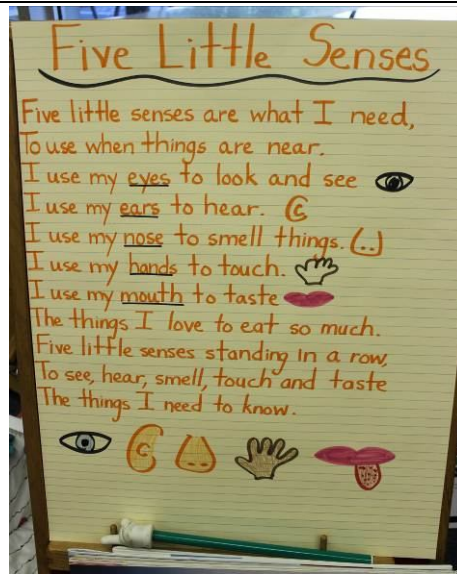 Five Little Senses
Five little senses are what I need,
To use when things are near.
I use my eyes to look and see
I use my ears to hear.
I use my nose to smell things.
I use my hands to touch.
I use my mouth to taste
The things I love to eat so much.
Five little senses standing in a row,
To see, hear, smell, touch and taste
The things I need to know.